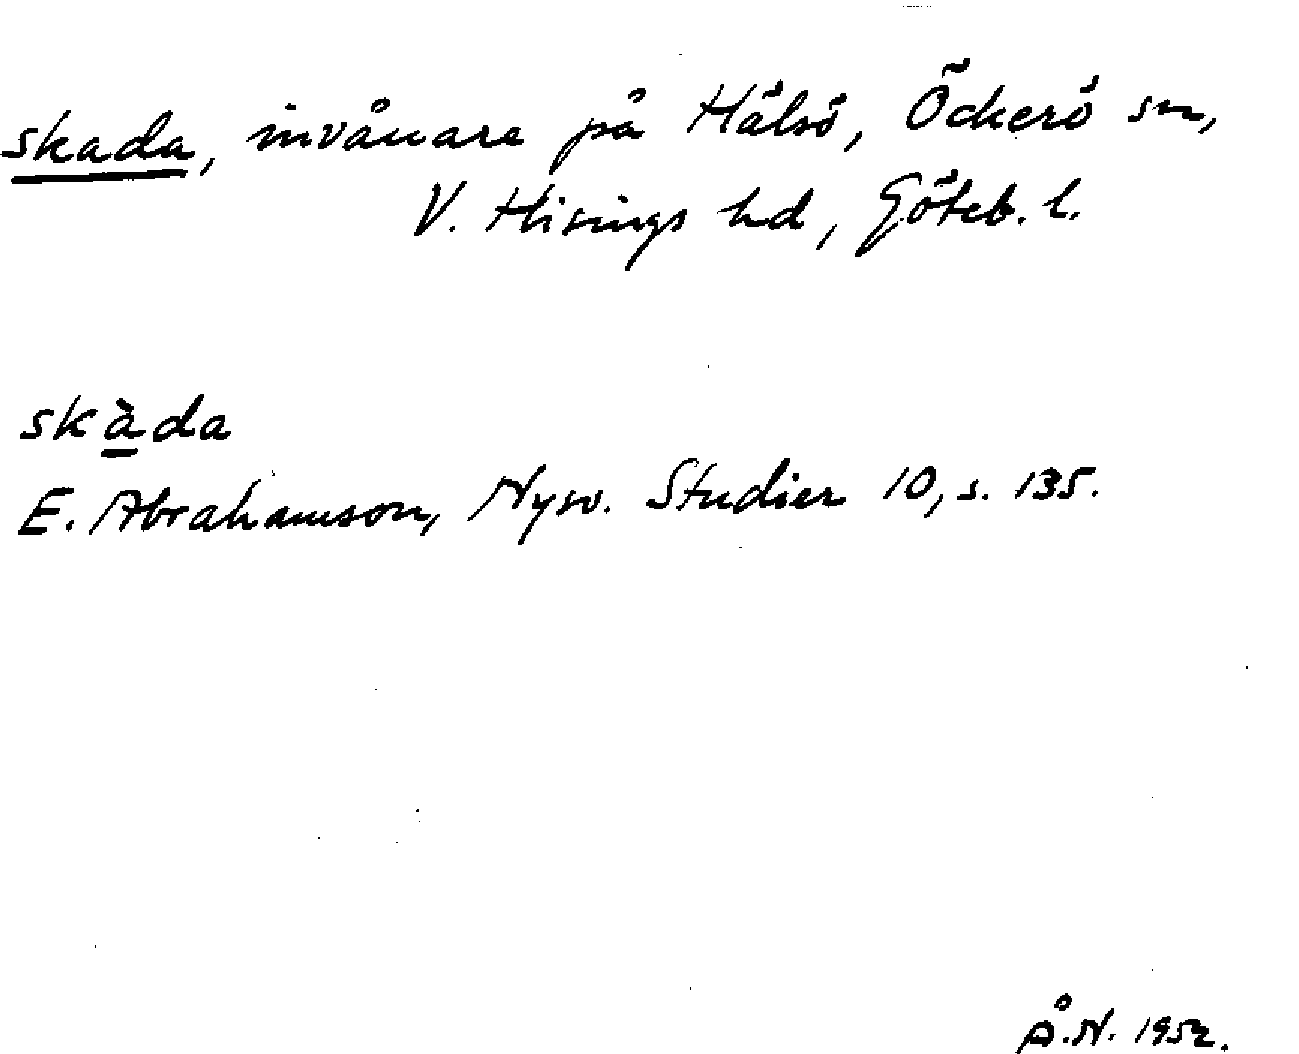 skada, invånare på Hälsö, Öckerö sn,
V. Hisings hd, Göteb. l.
skàda
E. Abrahamson, Nysv. Studier 10, s. 135.
Å.N. 1952.